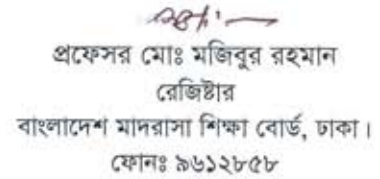 প্রফেসর মোঃ মজিবুর রহমান
রেজিষ্টার
বাংলাদেশ মাদরাসা শিক্ষা বোর্ড, ঢাকা।
ফোনঃ ৯৬১২৮৫৮